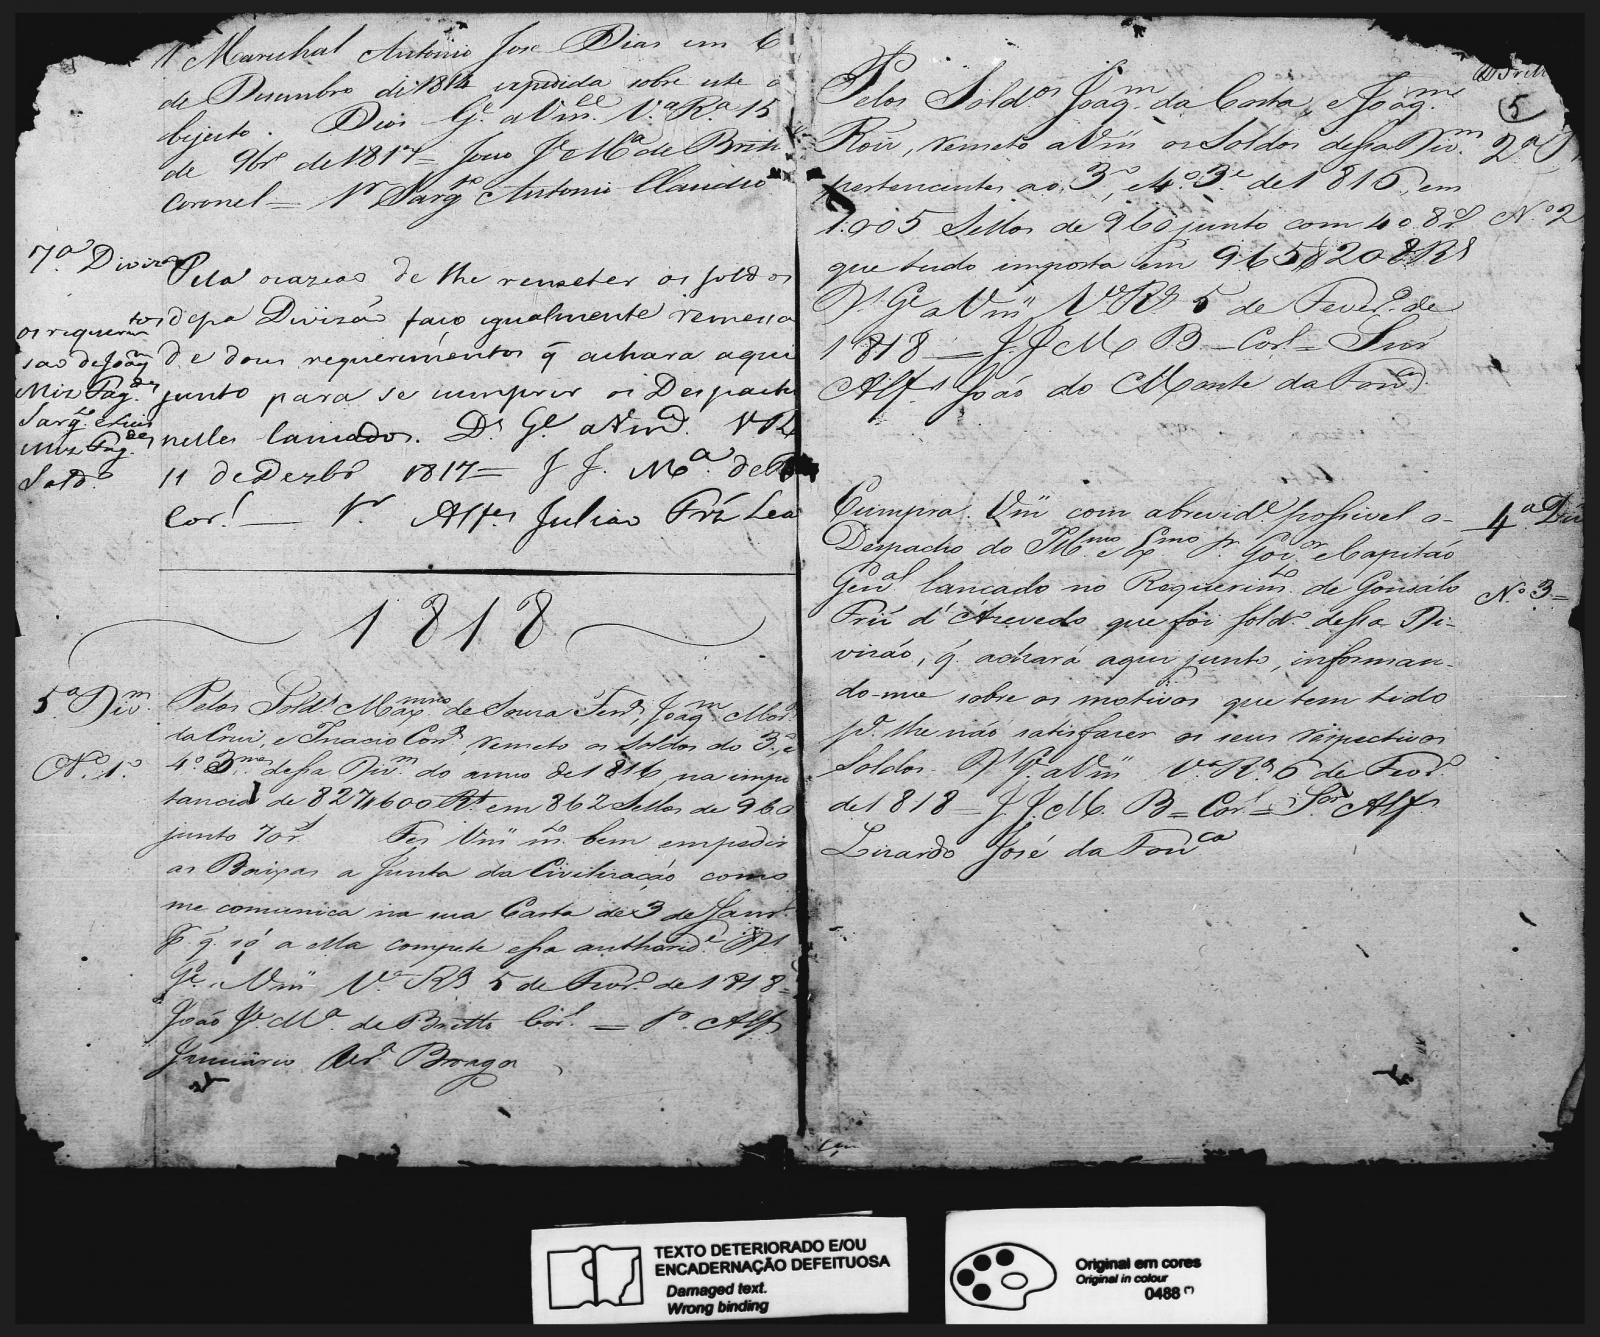 Marechal Antonio Jose Dias em 6
de Dezembro de 1814 expedida sobre este o
bjecto. Deos Ge. a Vm.ce V.a R.a 15
de 9br.o de 1817= João Je. M.a de Britto
Coronel = Sr. Sarg.to Antonio Claudio
7.a Divizão
Pela ocazião de lhe remeter os soldos
dessa Divizão faço igualmente remessa
de dous requerimentos q̃ achara aqui
junto para se cumprir os Despachos
nelles lancados. Ds. Ge. a Vm.ce V.a R.a
11 de Dezbr.o 1817= J. J. M.a de B
Cor.l — Sr. Alfes. Julião Frz Lea
os requerim.tos
sao de Joaq.m
Miz Fag.des
Sarg.to e Luis
Miz Fag.des
Sold.o
1818
5.a Div.m
N.o 1.o
Pelos Sold.s Max.mno de Souza Ferr.a, Joaq.m Mor.a
da Cruz, e Inacio Corr.a remeto os Soldos do 3.o e
4.o 3.mes dessa Div.m do anno de 1816 na impor
tancia de 827$600 Rs. em 862 Sellos de 960
junto 70 r.s Fes Vm.ce m.to bem empedir
as Baixas a Junta da Civilizacáo como
me comunica na sua Carta de 3 de Janr.o
p. q̃. só a ella compete essa authorid.e Ds.
Ge. a Vm.ce V.a R.a 5 de Fevr.o de 1818=
João Je. M.a de Britto Cor.l = Sr. Alfs.
Januário Braga
5
Pelos Sold.os Joaq.m da Costa, e Joaq.m
Roiz, remeto a Vm.ce os Soldos dessa Div.m
pertencentes ao 3.o, e 4.o 3.e de 1816, em
1.005 Sellos de 960 junto com 408 r.s
que tudo importa em 965$208 Rs
Ds. Ge. a Vm.ce V.a R.a 5 de Fever.o de
1818 = J. J. M. B = Cor.l = Snr
Alf.s João do Monte da Fon.ca
2.a D
N.o 2
Cumpra Vm.ce com abrevid.e possivel o
Despacho do Ill.mo e Ex.mo Sr. Gov.or e Capitão
Gen.al lancado no Requerim.to de Gonsalo
Frz d'Azevedo que foi sold.o dessa Di-
vizáo, q̃. achará aqui junto, informan-
do-me sobre os motivos que tem tido
p.a lhe não satisfazer os seus respectivos
Soldos. Ds. Ge. a Vm.ce V.a R.a 6 de Fevr.o
de 1818 = J. J. M. B = Cor.l = Sor. Alfs
Lizardo José da Fon.ca
4.a Div
N.o 3=
TEXTO DETERIORADO E/OU
ENCADERNAÇÃO DEFEITUOSA
Damaged text.
Wrong binding
Original em cores
Original in colour
0488 (*)